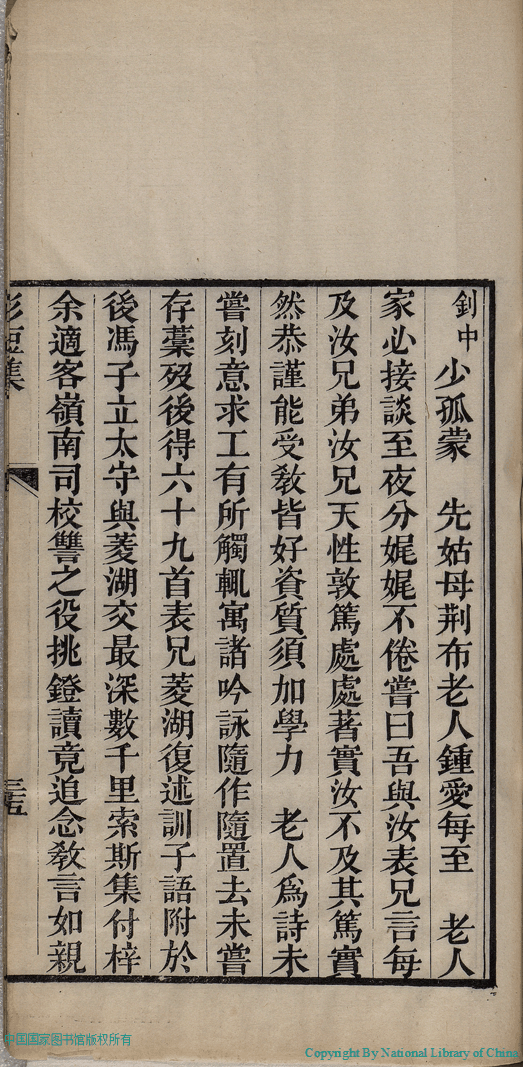 釗中少孤蒙　先姑母荆布老人鍾愛每至　老人
家必接談至夜分娓娓不倦嘗曰吾與汝表兄言每
及汝兄弟汝兄天性敦篤處處著實汝不及其篤實
然恭謹能受敎皆好資質須加學力　老人爲詩未
嘗刻意求工有所觸輒寓諸吟詠隨作隨置去未嘗
存藁歿後得六十九首表兄菱湖復述訓子語附於
後馮子立太守與菱湖交最深數千里索斯集付梓
余適客嶺南司校讐之役挑鐙讀竟追念敎言如親
集　三五
中国国家图书馆版权所有
Copyright By National Library of China